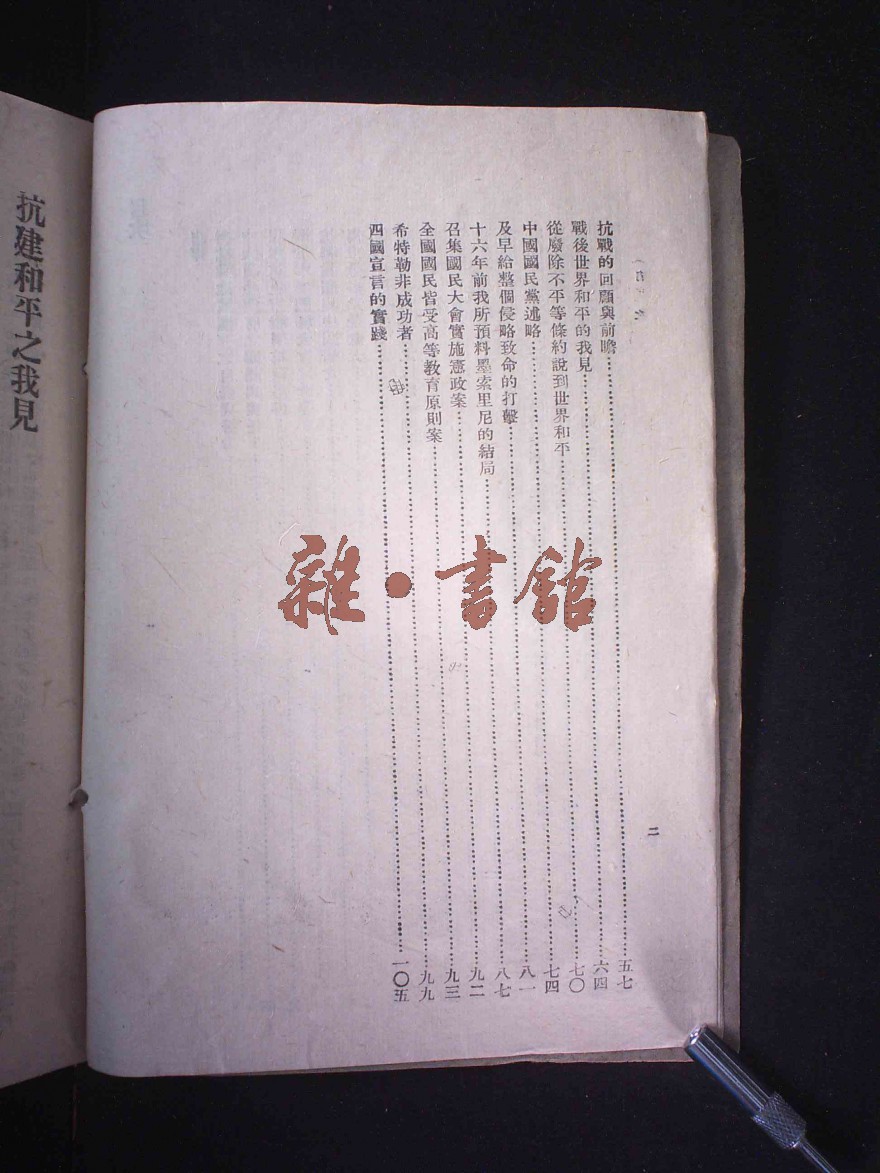 二
抗戰的回顧與前瞻……五七
戰後世界和平的我見……六四
從廢除不平等條約說到世界和平……七〇
中國國民黨述略……七四
及早給整個侵略致命的打擊……八一
十六年前我所預料墨索里尼的結局……八七
召集國民大會實施憲政案……九二
全國國民皆受高等教育原則案……九三
希特勒非成功者……九九
四國宣言的實踐……一〇五
抗建和平之我見
雜·書館